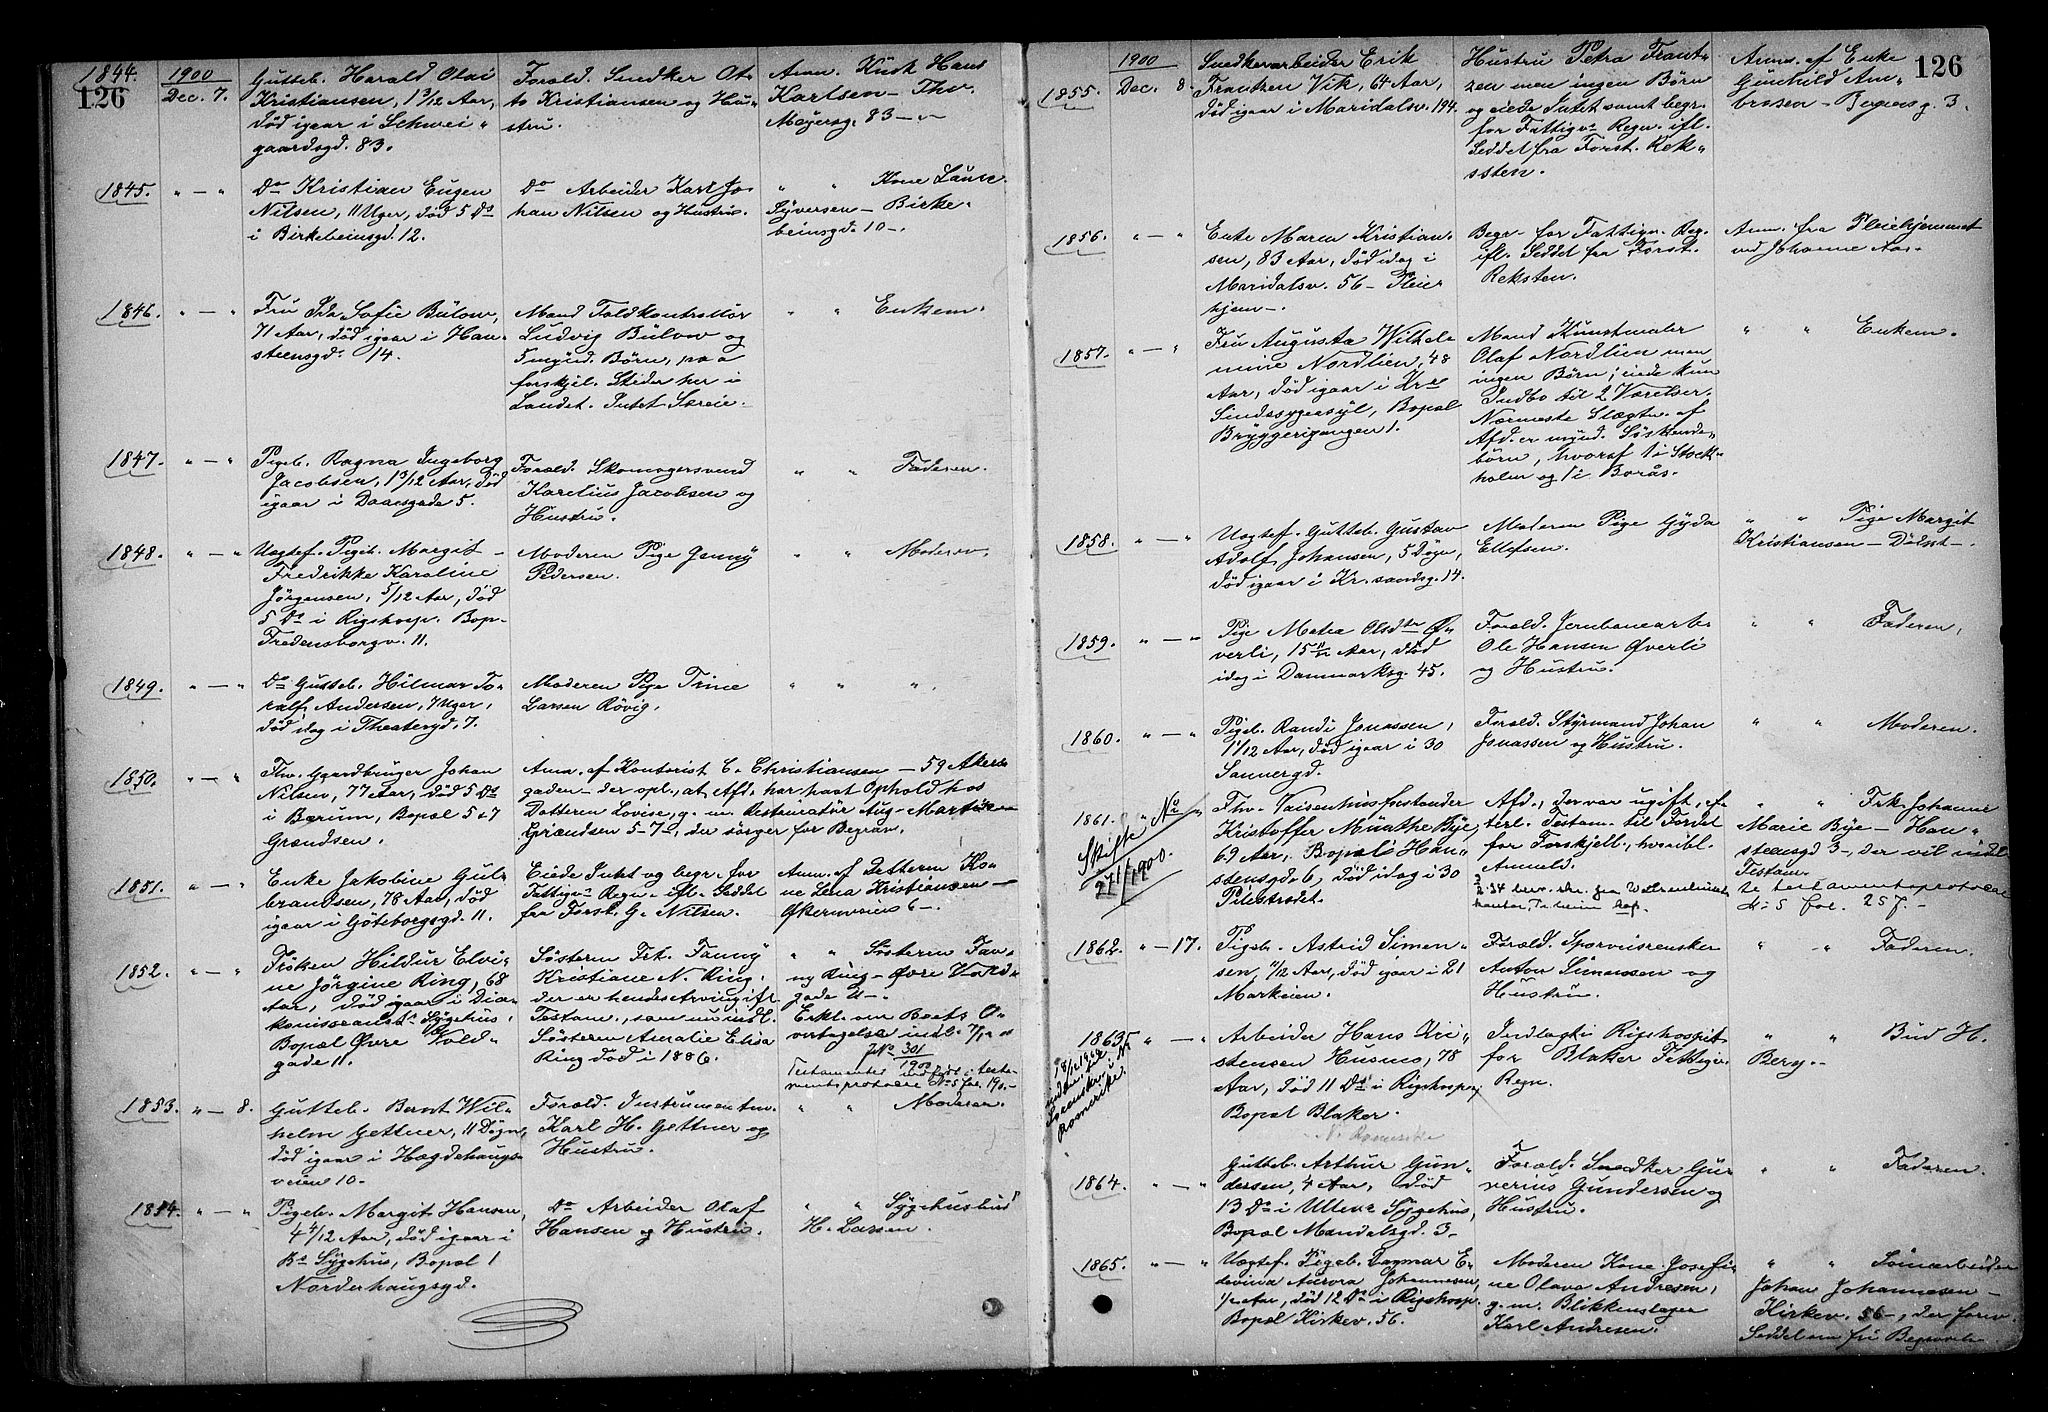 126
1844. 1900 Dec. 7.
Gutteb. Harald Olai
Kristiansen, 1 3/12 Aar,
død igaar i Schwei-
gaardsgd. 83.
Foræld. Snedker Ot-
to Kristiansen og Hu-
stru.
Anm. Kusk Hans
Karlsen - Thv.
Meyersg. 83 - "
1845. " - "
Do Kristian Eugen
Nilsen, 11 Uger, død 5 Ds
i Birkebeinsgd. 12.
Do Arbeider Karl Jo-
han Nilsen og Hustru.
" " Kone Laura
Syversen - Birke-
beinsgd. 10 -.
1846. " - "
Fru Ida Sofie Bülow,
71 Aar, død igaar i Han-
steensgd. 14.
Mand Toldkontrollør
Ludvig Bülow og
5 mynd. Børn, paa
forskjel. Steder her i
Landet. Intet Særeie.
" " Enkem.
1847. " - "
Pigeb. Ragna Ingeborg
Jacobsen, 1 3/12 Aar, død
igaar i Daasgade 5.
Foræld. Skomagersvend
Karelius Jacobsen og
Hustru.
" " Faderen.
1848. " - "
Uægtef. Pigeb. Margit
Fredrikke Karoline
Jörgensen, 5/12 Aar, død
5 Ds i Rigshosp. Bop.
Fredensborgv. 11.
Moderen Pige Jenny
Pedersen.
" " Moderen.
1849. " - "
Do Gutteb. Hilmar To-
ralf Andersen, 7 Uger,
død idag i Theatergd. 7.
Moderen Pige Trine
Larsen Røvig.
" " ".
1850. " - "
Fhv. Gaardbruger Johan
Nilsen, 77 Aar, død 5 Ds
i Bærum, Bopæl 5 & 7
Grændsen.
Anm. af Kontorist C. Christiansen - 59 Akers-
gaden - der opl., at Afd. har havt Ophold hos
Datteren Lovise, g. m. Restauratør Aug.
Grændsen 5-7, der sørger for Begrav.
1851. " - "
Enke Jakobine Gul-
brandsen, 78 Aar, død
igaar i Göteborgsgd. 11.
Eiede Intet og begr. for
Fattigv. Regn. ifl. Seddel
fra Forst. G. Nilsen.
Anm. af Datteren Ko-
ne Lena Kristiansen -
Økernveien 6 -.
1852. " - "
Frøken Hildur Elvi-
ne Jörgine Ring, 68
Aar, død igaar i Dia-
konisseanst. Sygehus,
Bopæl Øvre Vold-
gade 11.
Søsteren Frk. Fanny
Kristiane N. Ring,
der er hendes Arving ifl.
Testam., som nu indl.
Søsteren Aurelie Elisa
Ring død i 1886.
" " Søsteren Fan-
ny Ring - Øvre Vold-
gade 11 -.
Erkl. om Boets O-
vertagelse indl.
JNo 301
1900
Testamentet indført i testa-
mentsprotocol No 5 fol. 190.-
1853. " - 8.
Gutteb. Bernt Wil-
helm Gettner, 11 Døgn,
død igaar i Hægdehaugs-
veien 10.
Foræld. Instrumentm.
Karl H. Gettner og
Hustru.
" " Moderen.
1854. " - "
Pigeb. Margit Hansen,
4 4/12 Aar, død igaar i
Bs Sygehus, Bopæl 1
Norderhaugsgd.
Do Arbeider Olaf
Hansen og Hustru.
" " Sygehusbud
H. Larsen.
126
1855. 1900 Dec. 8.
Snedkerarbeider Erik
Frantzen Vik, 64 Aar,
død igaar i Maridalsv. 194.
Hustru Petra Frant-
zen men ingen Børn
og eiede Intet samt begr.
for Fattigv. Regn. ifl.
Seddel fra Forst. Rek-
ssten.
Anm. af Enke
Gunhild Am-
brosen - Bergensg. 3.
1856. " - "
Enke Maren Kristian-
sen, 83 Aar, død idag i
Maridalsv. 56 - Pleie-
hjem -.
Begr. for Fattigv. Reg.
ifl. Seddel fra Forst.
Reksten.
Anm. fra Pleiehjemmet
ved Johanne Aas.-
1857. " - "
Fru Augusta Wilhel-
mine Nordlien, 48
Aar, død igaar i Kra
Sindssygeasyl, Bopæl
Bryggerigangen 1.
Mand Kunstmaler
Olaf Nordlien men
ingen Børn; eiede kun
Indbo til 2 Værelser.
Nærmeste Slægtn. af
Afd. er mynd. Søskende-
børn, hvoraf 1 i Stock-
holm og 1 i Borås.
" " Enkem.
1858. " - "
Uægtef. Gutteb. Gustav
Adolf Johansen, 5 Døgn,
død igaar i Kr. sandsg. 14.
Moderen Pige Gyda
Ellefsen.
" " Pige Margit
Kristiansen - Do st -.
1859. " - "
Pige Mathea Olsdtr Ø-
verli, 15 11/12 Aar, død
idag i Danmarksg. 45.
Foræld. Jernbanearb.
Ole Hansen Øverli
og Hustru.
" " Faderen.
1860. " - "
Pigeb. Randi Jonassen,
1 1/12 Aar, død igaar i 30
Sannergd.
Foræld. Styrmand Johan
Jonassen og Hustru.
" " Moderen.
1861. " "
Skifte No
271/1900.
Fhv. Vaisenhusforstander
Kristoffer Münthe Bye,
69 Aar, Bopæl i Han-
steensgd. 6, død idag i 30
Pilestrædet.
Afd., der var ugift, ef-
terl. Testam. til Fordel
for Forskjell., hvoribl.
Anmeld.
" " Frk. Johanne
Marie Bye - Han-
steensgd 3 -, der vil indl.
Testam.
Se testamentsprotocol
No 5 fol. 257.-
1862. " - 17.
Pigeb. Astrid Simen-
sen, 11/12 Aar, død igaar i 21
Markveien.
Foræld. Sporveisrensker
Anton Simensen og
Hustru.
" " Faderen.
1863. " - "
Arbeider Hans Kri-
stensen Husmo, 78
Aar, død 11 Ds i Rigshosp.,
Bopæl Blaker.
N. Romerike
Indlagt i Rigshospit.
for Blaker Fattigv.
Regn.
" " Bud H.
Berg.
1864. " - "
Gutteb. Arthur Gun-
dersen, 4 Aar, død
13 Ds i Ullev. Sygehus,
Bopæl Mandalsgd. 3.
Foræld. Snedker Gu-
verius Gundersen og
Hustru.
" " Faderen.
1865. " - "
Uægtef. Pigeb. Dagmar E-
devina Aurora Johannesen,
1/2 Aar, død 12 Ds i Rigshosp.
Bopæl Kirkev. 56.
Moderen Kone Josefi-
ne Olava Andresen,
g. m. Blikkenslager
Karl Andresen.
" " Sømarbeider
Johan Johannesen -
Kirkev. 56 -, der forev.
Seddel om fri Begravelse.